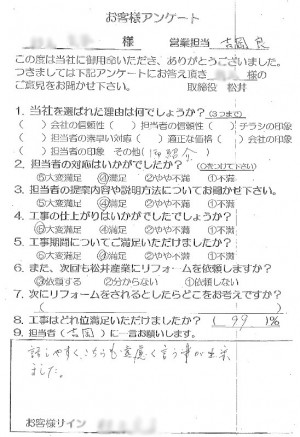 お客様アンケート
様 営業担当 吉岡 良
この度は当社に御用命いただき、ありがとうございました。
つきましては下記アンケートにお答え頂き 様の
ご意見をお聞かせ下さい。 取締役 松井
1. 当社を選ばれた理由は何でしょうか?(3つまで)
( )会社の信頼性 ( )担当者の信頼性 ( )チラシの印象
( )担当者の素早い対応 ( )適正な価格 ( )会社の印象
( )担当者の印象 その他( ご紹介 )
2. 担当者の対応はいかがでしたか? (○をつけて下さい)
⑤大変満足 ④満足 ②やや不満 ①不満
3. 担当者の提案内容や説明方法についてお聞かせ下さい。
⑤大変満足 ④満足 ②やや不満 ①不満
4. 工事の仕上がりはいかがでしたでしょうか?
⑤大変満足 ④満足 ②やや不満 ①不満
5. 工事期間についてご満足いただけましたか?
⑤大変満足 ④満足 ②やや不満 ①不満
6. また、次回も松井産業にリフォームを依頼しますか?
③依頼する ②分からない ①依頼しない
7. 次にリフォームをされるとしたらどこをお考えですか?
( )
8. 工事はどれ位満足いただけましたか? ( 99 )%
9. 担当者(吉岡)に一言お願いします。
話しやすくこちらも遠慮なく言う事が出来
ました。
お客様サイン